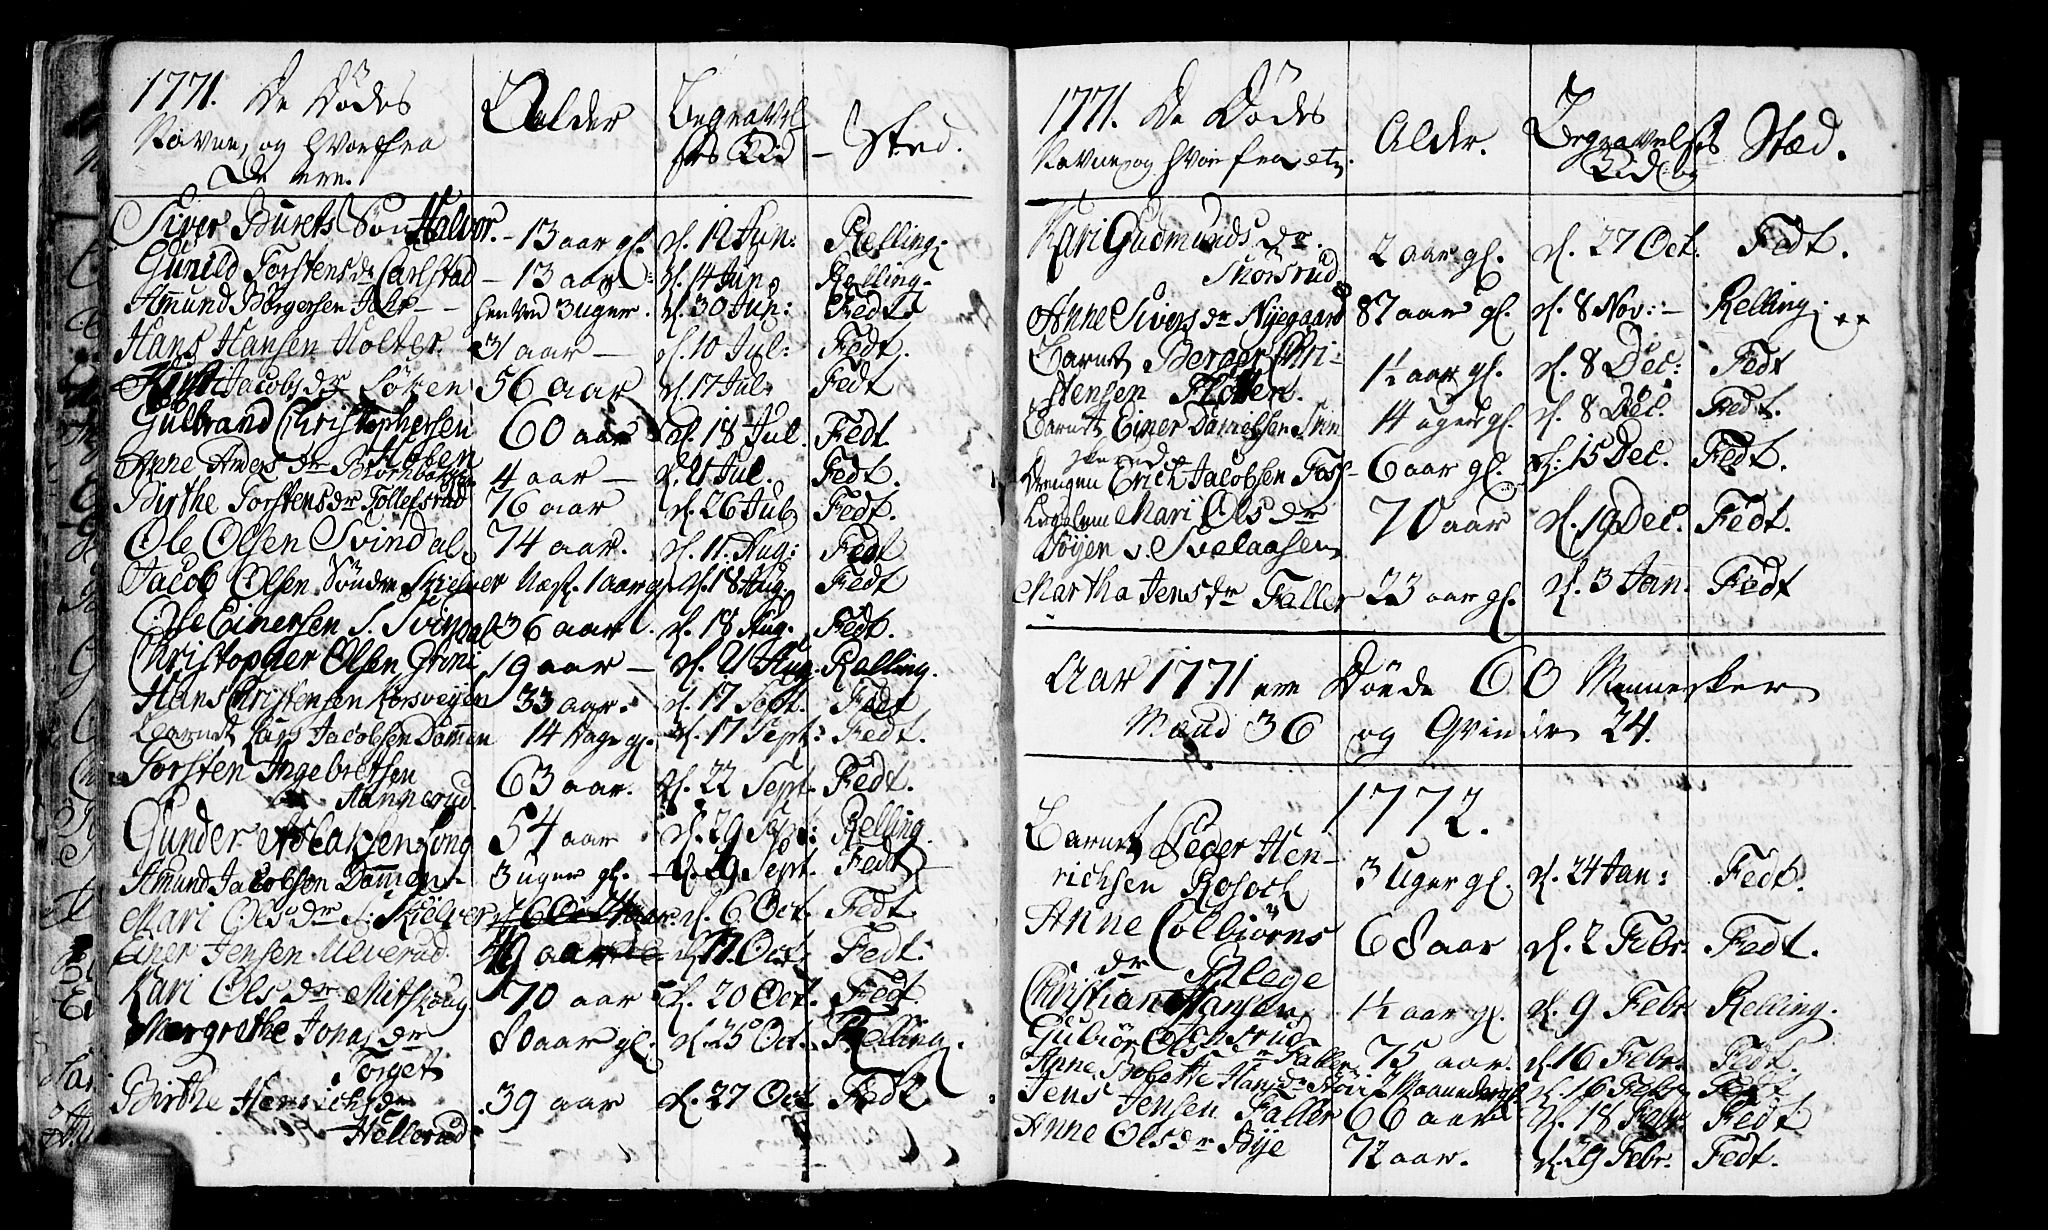 1771. De Dødes
Navne, og hvor fra
De ere.
Alder
Begravel
ses Tid
Sted.
Siver Burets Søn Halvor. - 13 aar gl. d. 12 Jun: Relling:
Gunild Torstens dr Carlstad - 13 aar d. 14 Jun: Relling.
Amund Børgersen henved 3 uger. d. 30 Jun: Fedt.
Hans Hansen Holter. 31 aar — d. 10 Jul: Fedt.
Jacobs dr Løken 56 aar d. 17 Jul: Fedt
Gulbrand Christophersen 60 aar d. 18 Jul. Fedt
Anne Anders dr 4 aar — d. 21 Jul. Fedt.
Birthe Torstens dr Tollefsrud 76 aar d. 26 Jul Fedt.
Ole Olsen Svindal 74 aar. d. 11. Aug: Fedt
Jacob Olsen Søndre Skielver Næst. 1 aar gl. d. 18 Aug. Fedt
Ole Einersen S. Svindal 36 aar. d. 18 Aug. Fedt.
Christopher Olsen Grini 19 aar — d. 21 Aug. Relling.
Hans Christensen Korsveyen 33 aar. d. 17 Sept. Fedt
Barnet Lars Jacobsen Dammen 14 dage gl. d. 17 Sept: Fedt.
Torsten Ingebretsen
Hannerud. 63 aar. d. 22 Sept. Fedt.
Gunder Aslaksen Ling 54 aar d. 29 Sept: Relling.
Amund Jacobsen Dammen 3 uger gl. d. 29 Sept. Fedt
Mari Ols dr S. Skielver d. 6 Oct. Fedt
Einer Jensen Ulverud. 49 aar d. 17. Oct. Fedt.
Kari Ols dr Mitskoug 70 aar d. 20 Oct. Fedt.
Margrethe Jonas dr
Torget 80 aar gl. d. 25 Oct. Relling.
Birthe Henrichs dr
Hellerud 39 aar d. 27 Oct Fedt.
1771. De Dødes
Navne, og hvor fra etc.
Alder.
Begravelses
Tid og
Stæd.
Kari Gudmunds dr.
Snorsrud 2 aar gl. d. 27 Oct. Fedt.
Anne Sivers dr Nyegaard 87 aar gl. d. 8 Nov: — Relling:
Barnet Berger Chri-
stensen Floten. 1½ aar gl. d. 8 Dec: Fedt
Barnet Einer Danielsen 14 uger gl. d. 8 Dec. Fedt.
Drengen Erich Jacobsen Foss 6 aar gl. d. 15 Dec. Fedt.
Mari Ols dr
Døyen v. Svelaasen 70 aar d. 19 Dec. Fedt.
Martha Jens dr Faller 23 aar gl. d. 3 Jan. Fedt
Aar 1771 ere Døde 60 Mennesker
Mænd 36 og Qvinder 24.
1772.
Barnet Peder Hen-
richsen Rosoch 3 Uger gl. d. 24 Jan: Fedt.
Anne Colbiørns
dr Fllege 68 aar d. 2 Febr. Fedt.
Christian Hansen 1½ aar gl. d. 9 Febr. Relling.
Gubiør Ols dr Faller 75 aar. d. 16 Febr. Fedt.
Anne Hans dr 7 Maaneder gl. d. 16 Febr. Fedt
Jens Jensen Faller 66 aar d. 18 Febr. Fedt
Anne Ols dr Bye 72 aar. d. 29 Febr. Fedt.